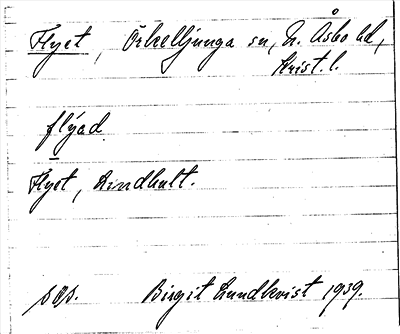 Flyet, Örkelljunga sn, N. Åsbo hd,
Krist. l.
flýad
Flyet, Lindhult.
sos. Birgit Lundkvist 1939.